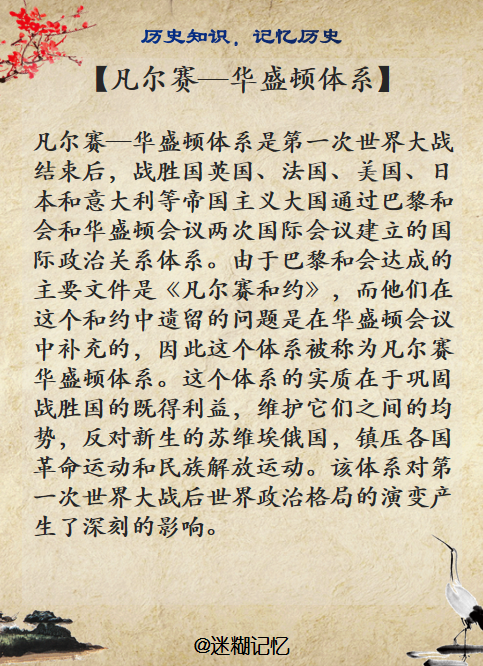 历史知识，记忆历史
【凡尔赛—华盛顿体系】
凡尔赛—华盛顿体系是第一次世界大战
结束后，战胜国英国、法国、美国、日
本和意大利等帝国主义大国通过巴黎和
会和华盛顿会议两次国际会议建立的国
际政治关系体系。由于巴黎和会达成的
主要文件是《凡尔赛和约》，而他们在
这个和约中遗留的问题是在华盛顿会议
中补充的，因此这个体系被称为凡尔赛
华盛顿体系。这个体系的实质在于巩固
战胜国的既得利益，维护它们之间的均
势，反对新生的苏维埃俄国，镇压各国
革命运动和民族解放运动。该体系对第
一次世界大战后世界政治格局的演变产
生了深刻的影响。
@迷糊记忆